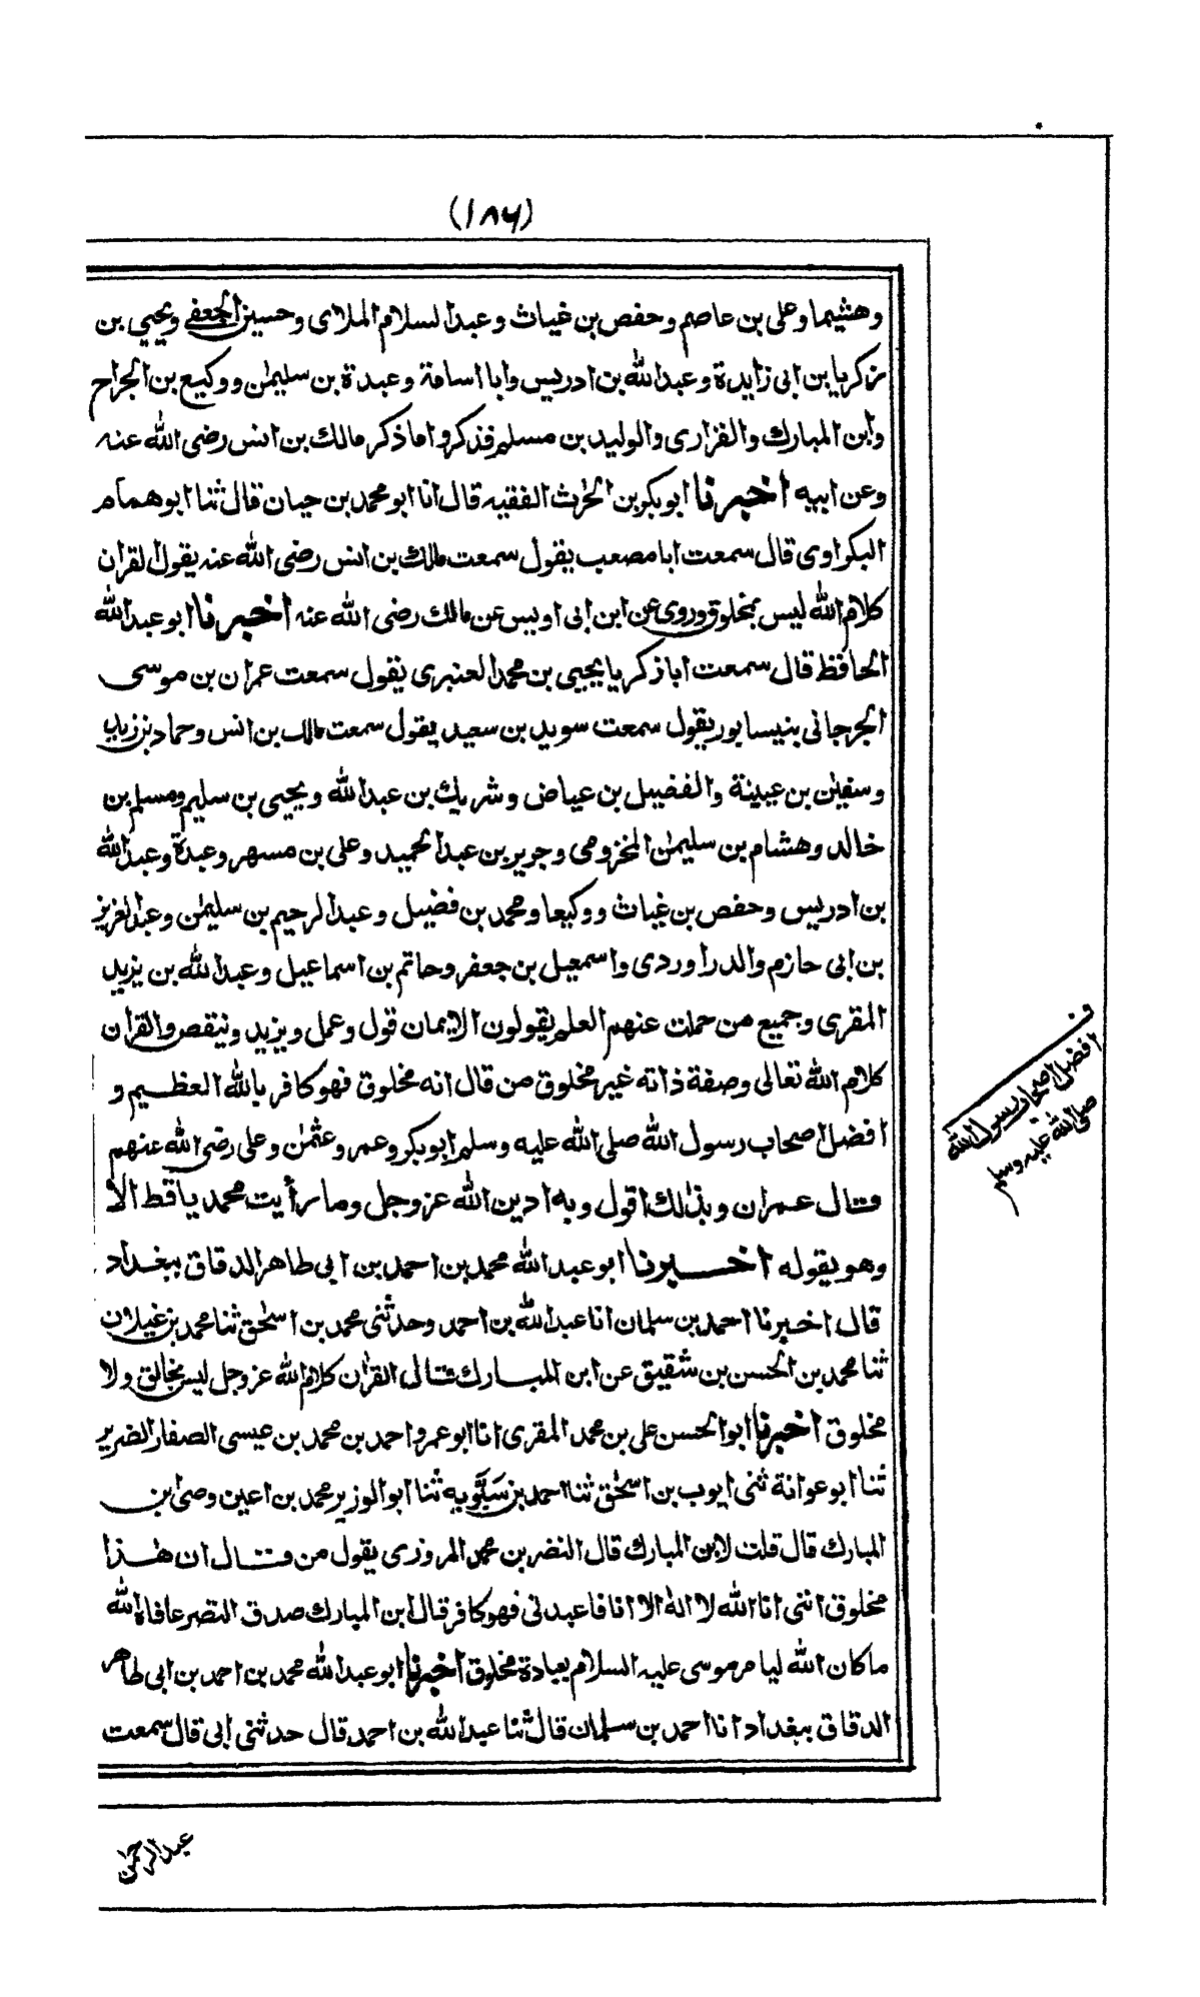 (١٨٦)
وهشيما وعلى بن عاصم وحفص بن غياث وعبد السلام الملاى وحسين الجعفى ويحيى بن
زكريا بن ابى زايدة وعبد الله بن ادريس وابا اسامة وعبدة بن سليمٰن ووكيع بن الجراح
وابن المبارك والفزارى والوليد بن مسلم فذكروا ما ذكر مالك بن انس رضى الله عنه
وعن ابيه اخبرنا ابو بكر بن الحٰرث الفقيه قال انا ابو محمد بن حيان قال ثنا ابو همام
البكراوى قال سمعت ابا مصعب يقول سمعت مالك بن انس رضى الله عنه يقول القران
كلام الله ليس بمخلوق وروى عن ابن ابى اويس عن مالك رضى الله عنه اخبرنا ابو عبد الله
الحافظ قال سمعت ابا زكريا يحيى بن محمد العنبرى يقول سمعت عمران بن موسى
الجرجانى بنيسابور يقول سمعت سويد بن سعيد يقول سمعت مالك بن انس وحماد بن زيد
وسفيٰن بن عيينة والفضيل بن عياض وشريك بن عبد الله ويحيى بن سليم ومسلم بن
خالد وهشام بن سليمٰن المخزومى وجرير بن عبد الحميد وعلى بن مسهر وعبدة وعبد الله
بن ادريس وحفص بن غياث ووكيعا ومحمد بن فضيل وعبد الرحيم بن سليمٰن وعبد العزيز
بن ابى حازم والدراوردى واسمعيل بن جعفر وحاتم بن اسماعيل وعبد الله بن يزيد
المقرى وجميع من حملت عنهم العلم يقولون الايمان قول وعمل ويزيد وينقص والقران
كلام الله تعالى وصفة ذاته غير مخلوق من قال انه مخلوق فهو كافر بالله العظيم و
افضل اصحاب رسول الله صلى الله عليه وسلم ابو بكر وعمر وعثمٰن وعلى رضى الله عنهم
قال عمران وبذلك اقول وبه ادين الله عز وجل وما رأيت محمد يا قط الا
وهو يقوله اخبرنا ابو عبد الله محمد بن احمد بن ابى طاهر الدقاق ببغداد
قال اخبرنا احمد بن سلمان انا عبد الله بن احمد وحدثنى محمد بن اسحٰق ثنا محمد بن غيلان
ثنا محمد بن الحسن بن شقيق عن ابن المبارك قال القراٰن كلام الله عز وجل ليس بخالق ولا
مخلوق اخبرنا ابو الحسن على بن محمد المقرى انا ابو عمرو احمد بن محمد بن عيسى الصفار الضرير
ثنا ابو عوانة ثنى ايوب بن اسحٰق ثنا احمد بن سَبُّويه ثنا ابو الوزير محمد بن اعين وصى ابن
المبارك قال قلت لابن المبارك قال النضر بن محمد المروزى يقول من قال ان هٰذا
مخلوق اننى انا الله لا الٰه الا انا فاعبدنى فهو كافر قال ابن المبارك صدق النصر عافاه الله
ما كان الله ليامر موسى عليه السلام بعبادة مخلوق اخبرنا ابو عبد الله محمد بن احمد بن ابى طاهر
الدقاق ببغداد انا احمد بن سلمان قال ثنا عبد الله بن احمد قال حدثنى ابى قال سمعت
عبد الرحمٰن
ف
افضل اصحاب رسول الله
صلى الله عليه وسلم